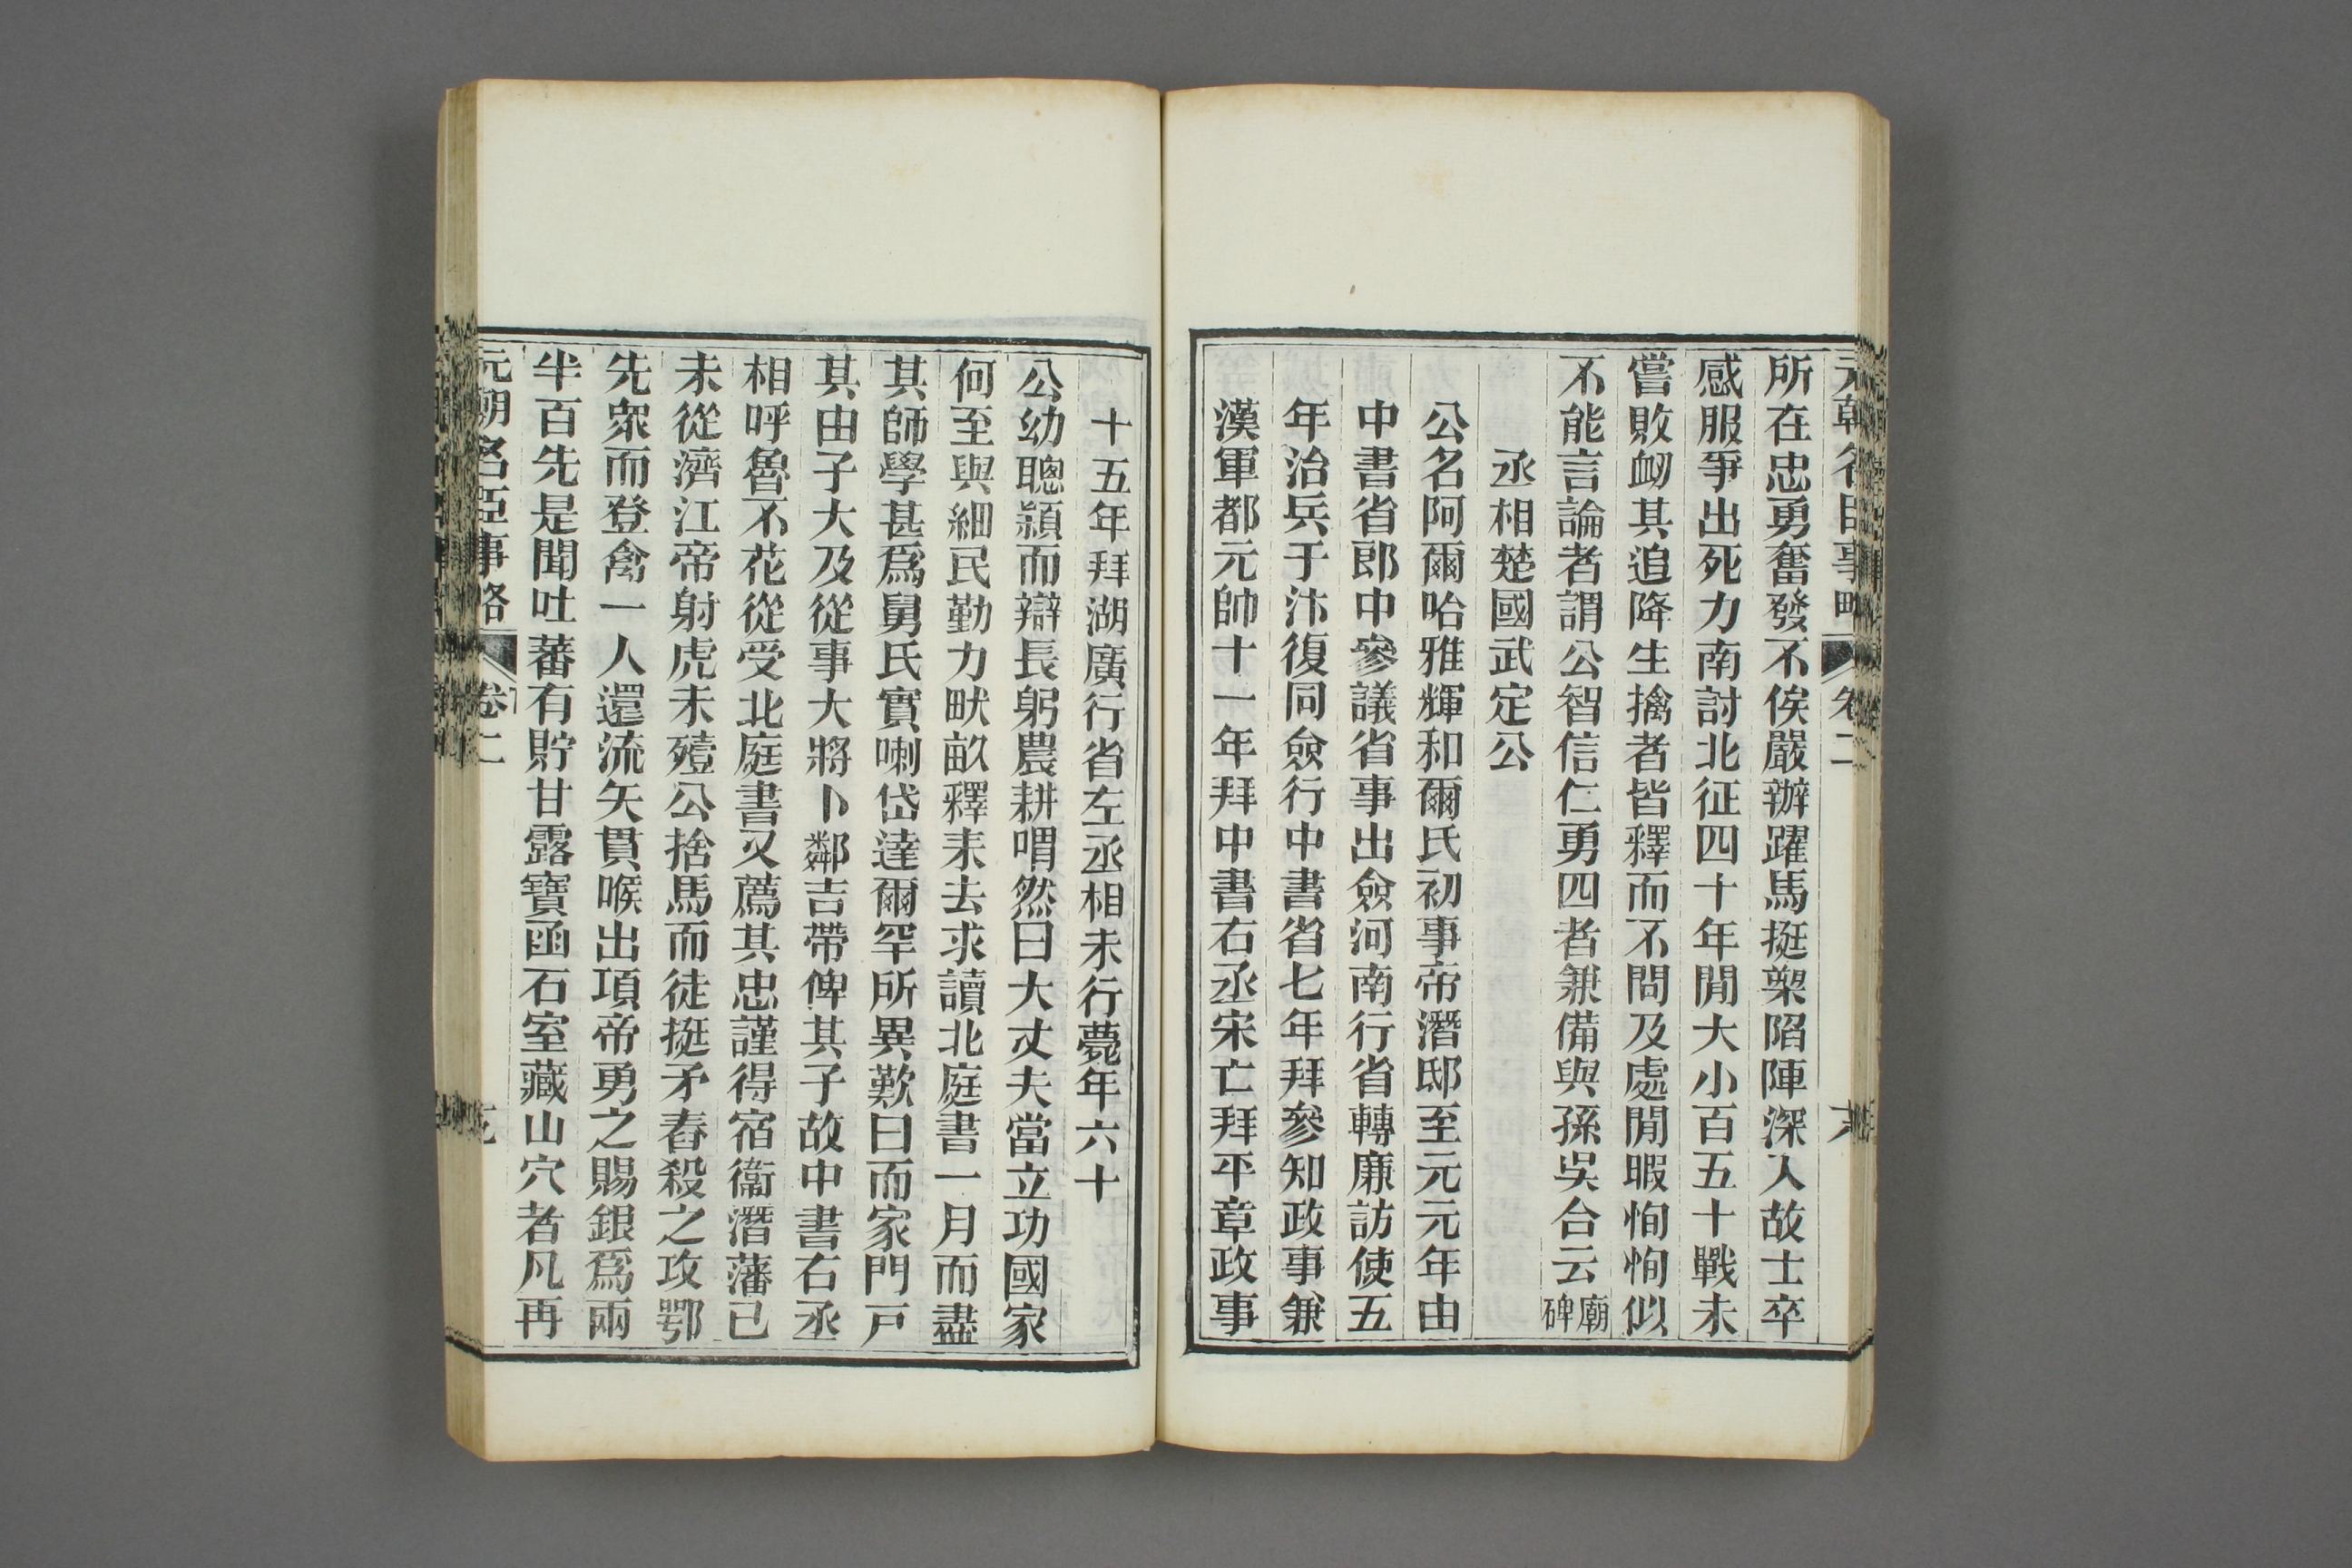 元朝名臣事略 卷二 六
所在忠勇奮發不俟嚴辦躍馬挺槊陷陣深入故士卒
感服爭出死力南討北征四十年閒大小百五十戰未
嘗敗衂其追降生擒者皆釋而不問及處閒暇恂恂似
不能言論者謂公智信仁勇四者兼備與孫吳合云廟碑
丞相楚國武定公
公名阿爾哈雅輝和爾氏初事帝潛邸至元元年由
中書省郎中參議省事出僉河南行省轉廉訪使五
年治兵于汴復同僉行中書省七年拜參知政事兼
漢軍都元帥十一年拜中書右丞宋亡拜平章政事
十五年拜湖廣行省左丞相未行薨年六十
公幼聰穎而辯長躬農耕喟然曰大丈夫當立功國家
何至與細民勤力畎畝釋耒去求讀北庭書一月而盡
其師學甚爲舅氏實喇岱達爾罕所異歎曰而家門戸
其由子大及從事大將卜鄰吉帶俾其子故中書右丞
相呼魯不花從受北庭書又薦其忠謹得宿衞潛藩已
未從濟江帝射虎未殪公捨馬而徒挺矛舂殺之攻鄂
先衆而登禽一人還流矢貫喉出項帝勇之賜銀爲兩
半百先是聞吐蕃有貯甘露寶函石室藏山穴者凡再
元朝名臣事略 卷二